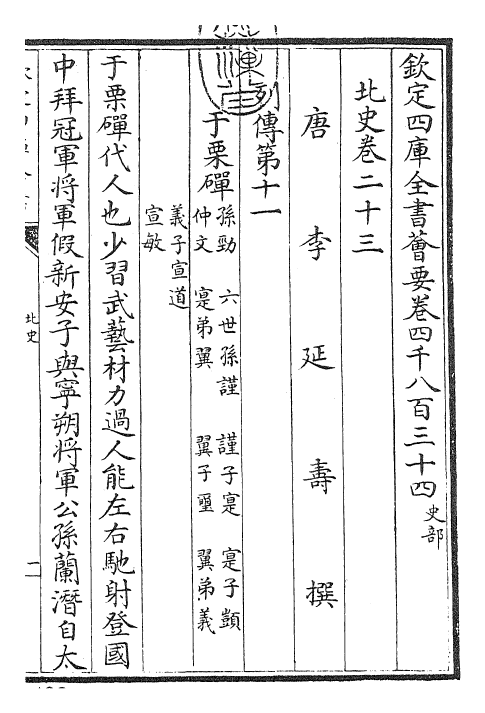 欽定四庫全書薈要卷四千八百三十四 史部
北史卷二十三
唐 李 延 壽 撰
列傳第十一
于栗磾 孫勁 六世孫謹 謹子寔 寔子顗
仲文 寔弟翼 翼子璽 翼弟義
義子宣道
宣敏
于栗磾代人也少習武藝材力過人能左右馳射登國
中拜冠軍將軍假新安子與寧朔將軍公孫蘭潛自太
北史